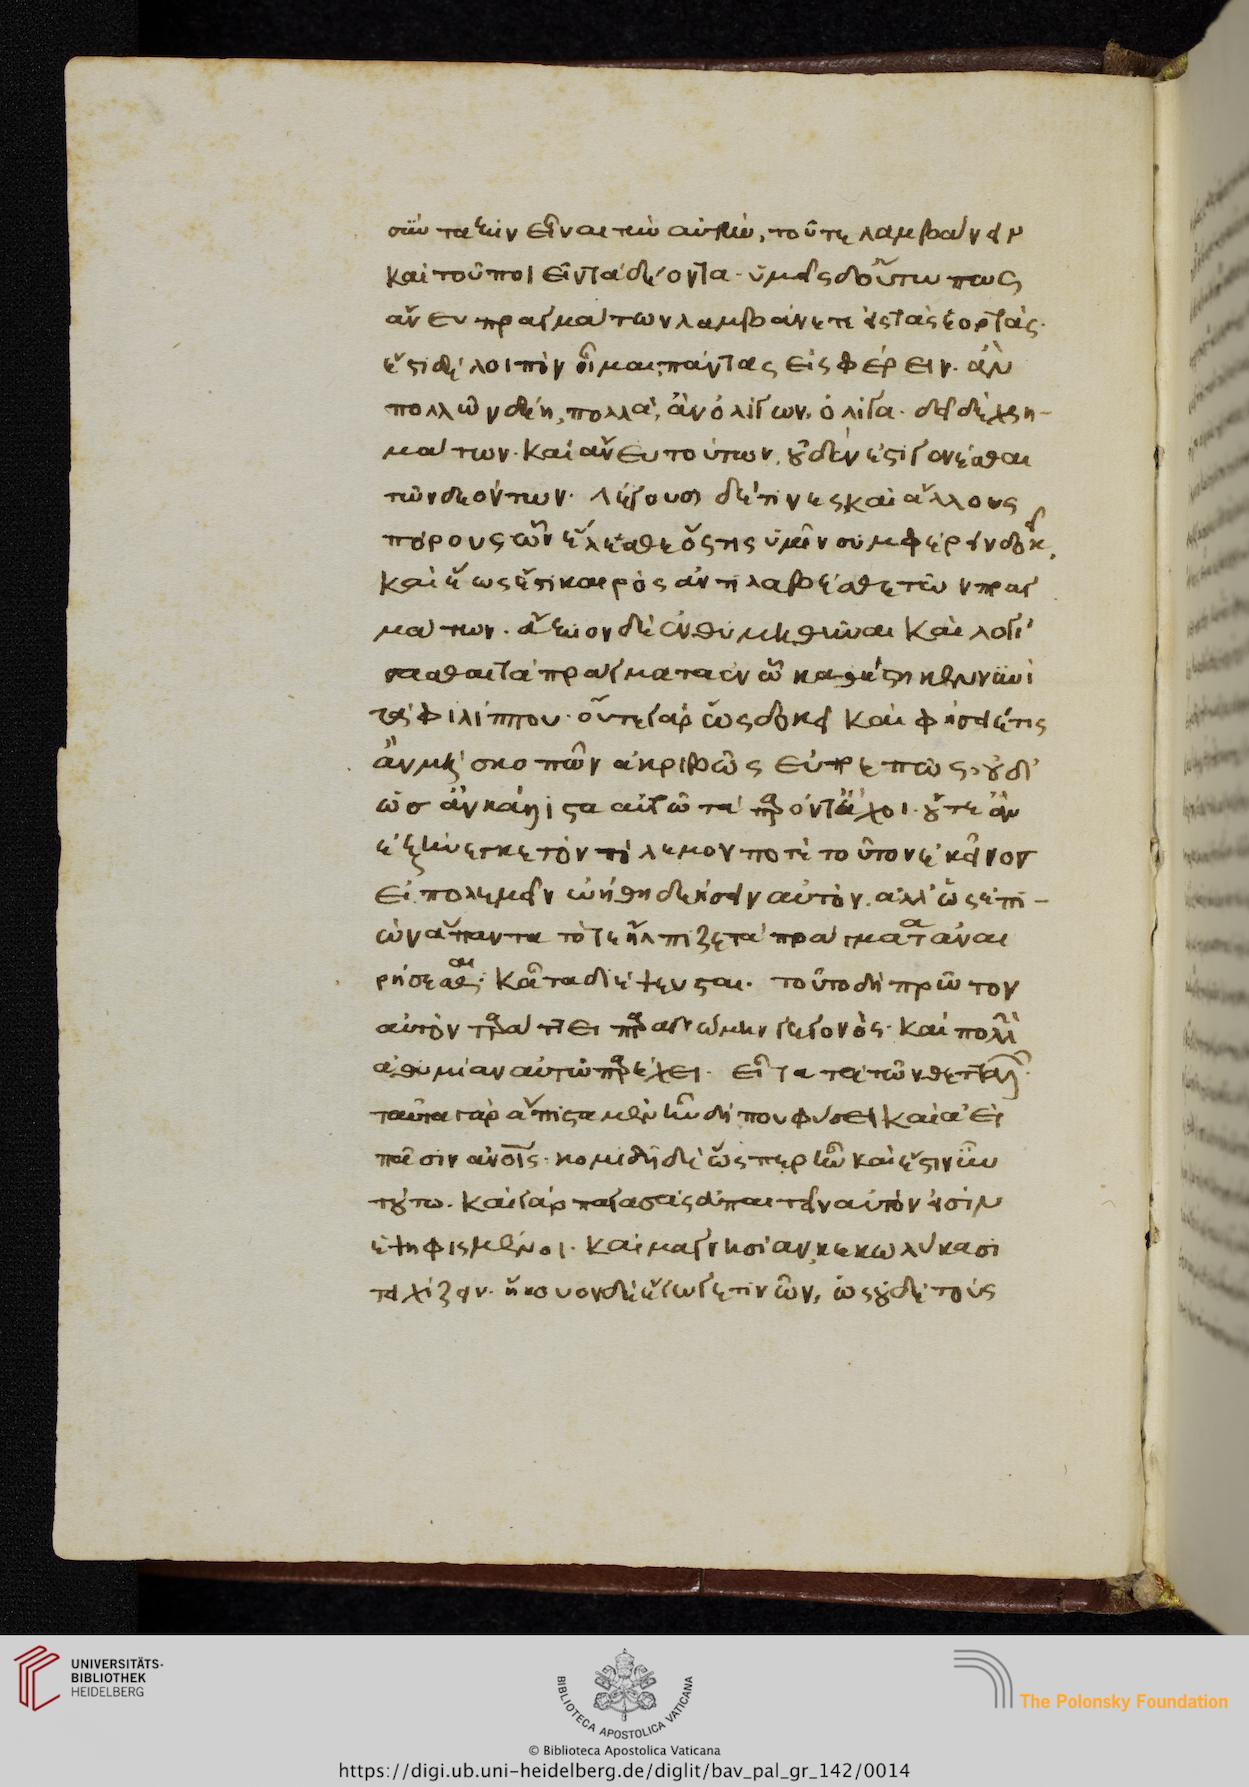 σύνταξιν εἶναι τὴν αὐτὴν, τοῦ τε λαμβάνειν
καὶ τοῦ ποιεῖν τὰ δέοντα. ὑμεῖς δ' οὕτω πως
ἄνευ πραγμάτων λαμβάνετε εἰς τὰς ἑορτάς.
ἔστι δὲ λοιπὸν οἶμαι, πάντας εἰσφέρειν. ἂν
πολλῶν δέῃ, πολλά, ἂν ὀλίγων, ὀλίγα. δεῖ δὲ χρη-
μάτων. καὶ ἄνευ τούτων, οὐδὲν ἔστι γενέσθαι
τῶν δεόντων. λέγουσι δέ τινες καὶ ἄλλους
πόρους ὧν ἕλεσθε ὅστις ὑμῖν συμφέρειν δοκεῖ,
καὶ ἕως ἔτι καιρὸς ἀντιλάβεσθε τῶν πραγ
μάτων. ἄξιον δὲ ἐνθυμηθῆναι καὶ λογί
σασθαι τὰ πράγματα ἐν ᾧ καθέστηκε νυνὶ
τὰ φιλίππου. οὔτε γὰρ ὡς δοκεῖ καὶ φήσειέ τις
ἂν μὴ σκοπῶν ἀκριβῶς εὐτρεπῶς, οὐδ'
ὡς ἂν κάλλιστα αὐτῷ τὰ παρόντ' ἔχοι. οὔτε ἂν
ἐξήνεγκε τὸν πόλεμον ποτὲ τοῦτον ἐκεῖνος
εἰ πολεμεῖν ᾠήθη δεήσειν αὐτὸν. ἀλλ' ὡς ἐπι-
ὼν ἅπαντα τότε ἤλπιζε τὰ πράγματα ἀναι
ρήσεσθαι. κᾆτα διέψευσται. τοῦτο δὴ πρῶτον
αὐτὸν ταράττει παρὰ γνώμην γεγονὸς. καὶ πολλὴν
ἀθυμίαν αὐτῷ παρέχει. εἶτα τὰ τῶν θετταλῶν.
ταῦτα γὰρ ἄπιστα μὲν ἦν δή που φύσει καὶ ἀεὶ
πᾶσιν ἀνθρώποις. κομιδῇ δὲ ὥσπερ ἦν καὶ ἔστι νῦν
τούτῳ. καὶ γὰρ παγασὰς ἀπαιτεῖν αὐτόν εἰσιν
ἐψηφισμένοι. καὶ μαγνησίαν, κεκωλύκασι
τειχίζειν. ἤκουον δὲ ἔγωγέ τινῶν, ὡς οὐδὲ τοὺς
UNIVERSITÄTS-
BIBLIOTHEK
HEIDELBERG
BIBLIOTECA APOSTOLICA VATICANA
The Polonsky Foundation
© Biblioteca Apostolica Vaticana
https://digi.ub.uni-heidelberg.de/diglit/bav_pal_gr_142/0014